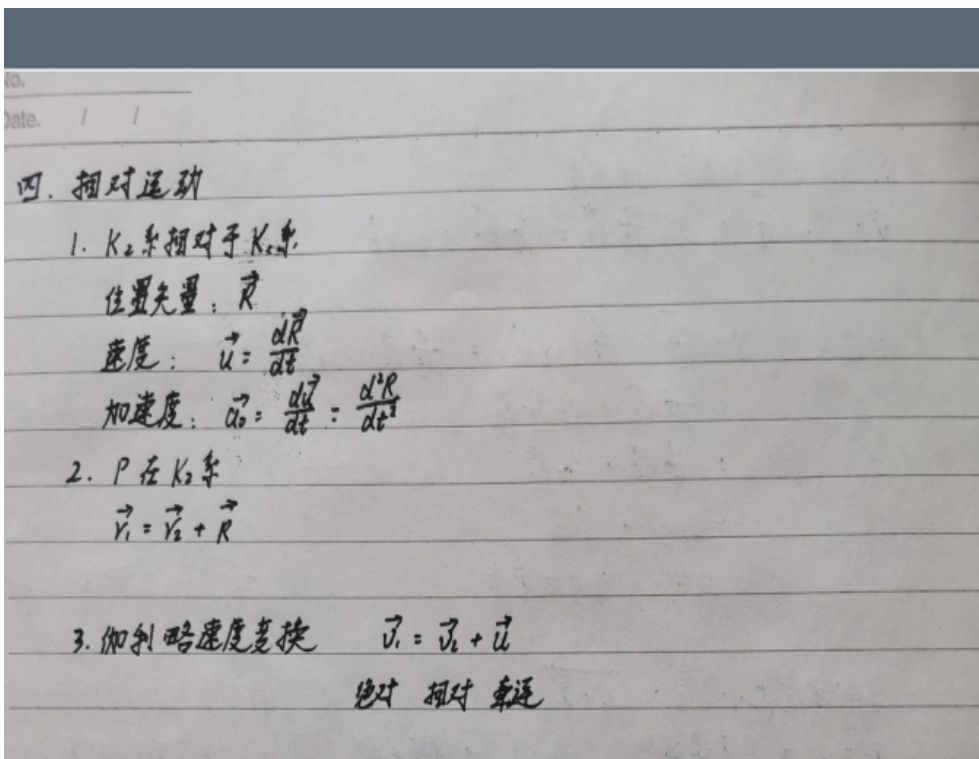 No.
Date. / /
四. 相对运动
1. K₂系相对于K₁系.
位置矢量: $\vec{R}$
速度: $\vec{u} = \frac{d\vec{R}}{dt}$
加速度: $\vec{a_0} = \frac{d\vec{u}}{dt} = \frac{d^2R}{dt^2}$
2. P在K₂系
$\vec{r_1} = \vec{r_2} + \vec{R}$
3. 伽利略速度变换 $\vec{v_1} = \vec{v_2} + \vec{u}$
绝对 相对 牵连